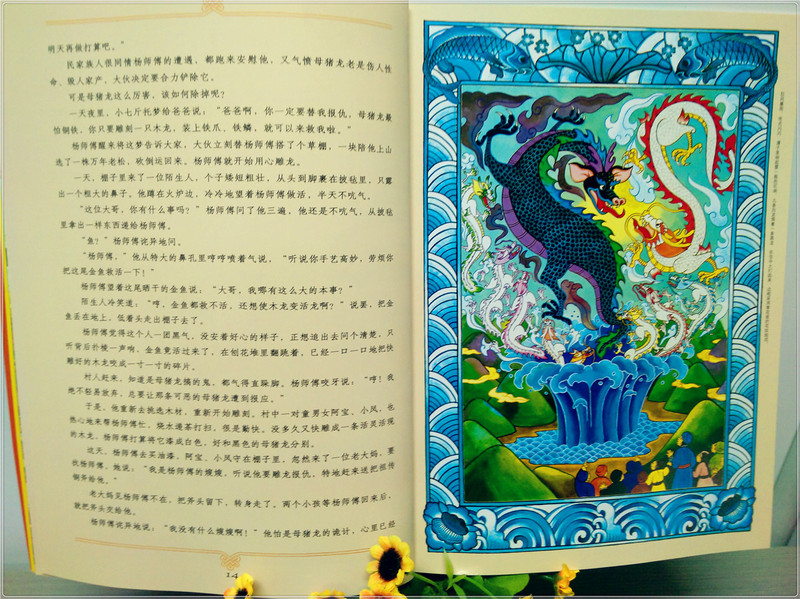 明天再做打算吧。”
民家族人很同情杨师傅的遭遇，都跑来安慰他，又气愤母猪龙老是伤人性
命、毁人家产，大伙决定要合力铲除它。
可是母猪龙这么厉害，该如何除掉呢？
一天夜里，小七斤托梦给爸爸说：“爸爸啊，你一定要替我报仇，母猪龙最
怕钢铁，你只要雕刻一只木龙，装上铁爪、铁鳞，就可以来救我啦。”
杨师傅醒来将这梦告诉大家，大伙立刻替杨师傅搭了个草棚，一块陪他上山
选了一株万年老松，砍倒运回来，杨师傅就开始用心雕龙。
一天，棚子里来了一位陌生人，个子矮短粗壮，从头到脚裹在披毡里，只露
出一个粗大的鼻子。他蹲在火炉边，冷冷地望着杨师傅做活，半天不吭气。
“这位大哥，你有什么事吗？”杨师傅问了他三遍，他还是不吭气，从披毡
里拿出一样东西递给杨师傅。
“鱼？”杨师傅诧异地问。
“杨师傅，”他从特大的鼻孔里哼哼喷着气说，“听说你手艺高妙，劳烦你
把这尾金鱼救活一下！”
杨师傅望着这尾晒干的金鱼说：“大哥，我哪有这么大的本事？”
陌生人冷笑道：“哼，金鱼都救不活，还想使木龙变活龙啊？”说罢，把金
鱼丢在地上，低着头走出棚子去了。
杨师傅觉得这个人一团黑气，没安着好心的样子，正想追出去问个清楚，只
听背后扑棱一声响，金鱼竟活过来了，在刨花堆里翻跳着，已经一口一口地把快
雕好的木龙咬成一寸一寸的碎片。
村人赶来，知道是母猪龙搞的鬼，都气得直跺脚，杨师傅咬牙说：“哼！我
绝不轻易放弃，总要让那条可恶的母猪龙遭到报应。”
于是，他重新去挑选木材，重新开始雕刻。村中一对童男女阿宝、小凤，也
热心地来帮杨师傅忙，烧水递茶打扫，很是勤快。没多久又快雕成一条活灵活现
的木龙，杨师傅打算将它漆成白色，好和黑色的母猪龙分别。
这天，杨师傅去买油漆，阿宝、小凤守在棚子里，忽然来了一位老大妈，要
找杨师傅，她说：“我是杨师傅的嫂嫂，听说他要雕龙报仇，特地赶来送把祖传
钢斧给他。”
老大妈见杨师傅不在，把斧头留下，转身走了。两个小孩等杨师傅回来后，
就把斧头交给他。
杨师傅诧异地说：“我没有什么嫂嫂啊！”他怕是母猪龙的诡计，心里已经
14